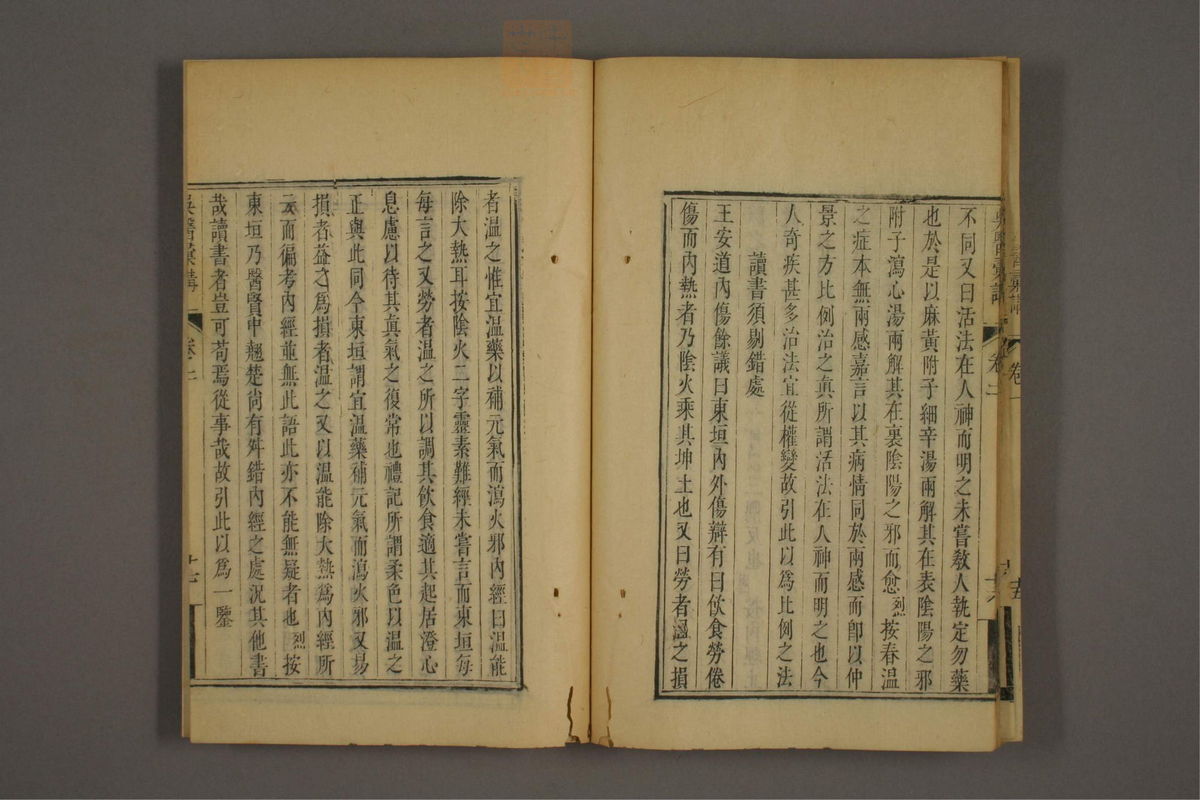 不同又曰活法在人神而明之未嘗教人執定勿藥
也於是以麻黃附子細辛湯兩解其在表陰陽之邪
附子瀉心湯兩解其在裏陰陽之邪而愈烈按春溫
之症本無兩感嘉言以其病情同於兩感而卽以仲
景之方比例治之眞所謂活法在人神而明之也今
人奇疾甚多治法宜從權變故引此以爲比例之法
讀書須剔錯處
王安道內傷餘議曰東垣內外傷辯有曰飲食勞倦
傷而內熱者乃陰火乘其坤土也又曰勞者溫之損
者溫之惟宜溫藥以補元氣而瀉火邪內經曰溫能
除大熱耳按陰火二字靈素難經未嘗言而東垣每
每言之又勞者溫之所以調其飲食適其起居澄心
息慮以待其眞氣之復常也禮記所謂柔色以溫之
正與此同今東垣謂宜溫藥補元氣而瀉火邪又易
損者益之爲損者溫之又以溫能除大熱爲內經所
云而徧考內經並無此語此亦不能無疑者也烈按
東垣乃醫賢中翹楚尙有舛錯內經之處況其他書
哉讀書者豈可苟焉從事哉故引此以爲一鑒
吳醫彙講
卷二
十七